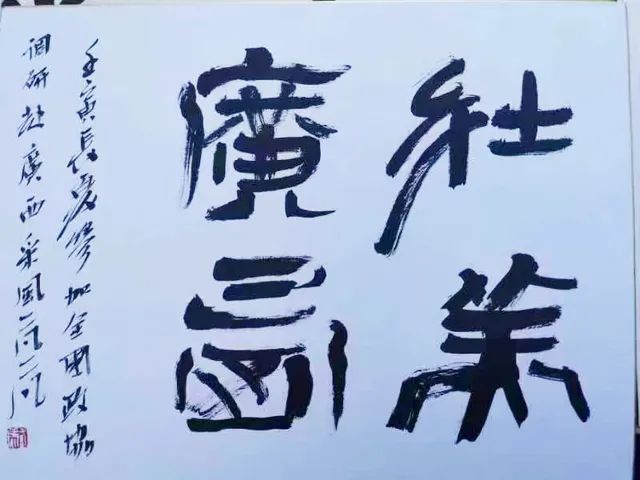 壯美
廣西
壬寅長夏參加全國政協
調研赴廣西采風